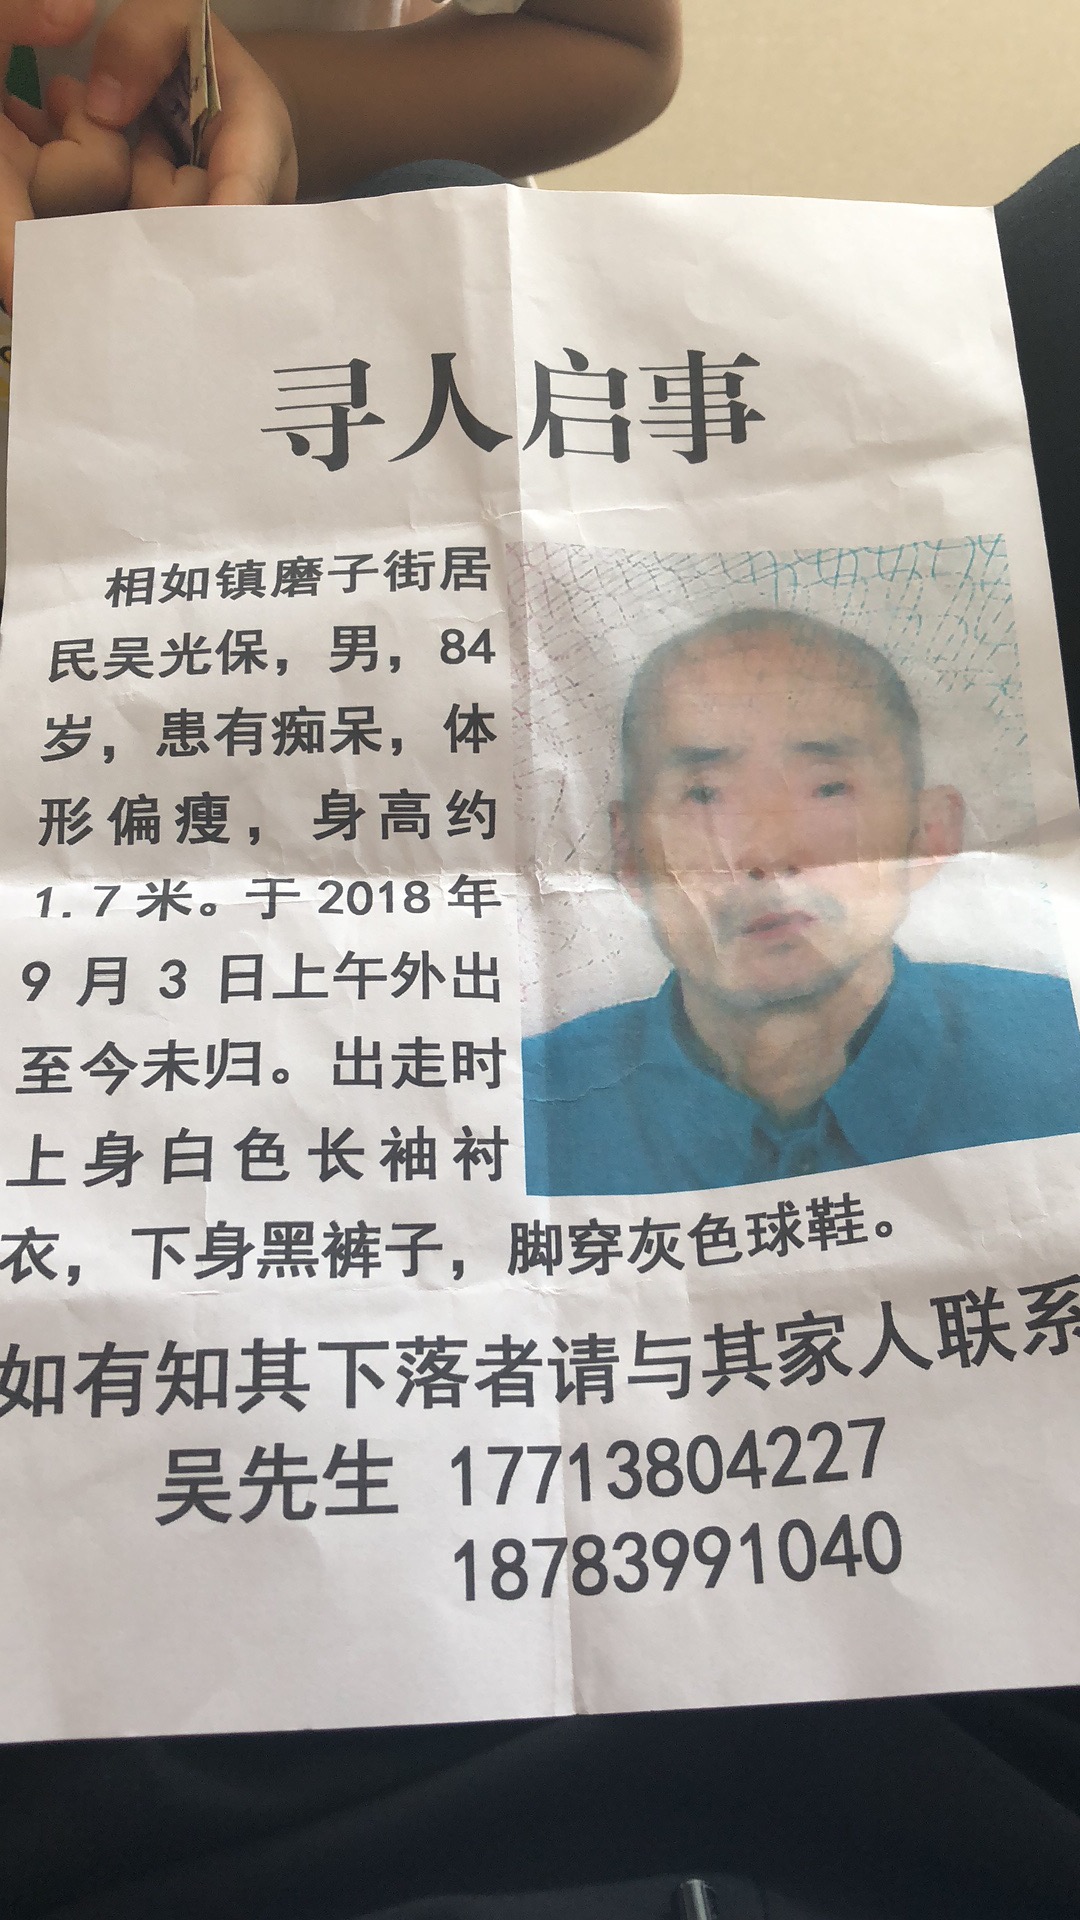 寻人启事
相如镇磨子街居
民吴光保，男，84
岁，患有痴呆，体
形偏瘦，身高约
1.7米。于2018年
9月3日上午外出
至今未归。出走时
上身白色长袖衬
衣，下身黑裤子，脚穿灰色球鞋。
如有知其下落者请与其家人联系
吴先生 17713804227
18783991040